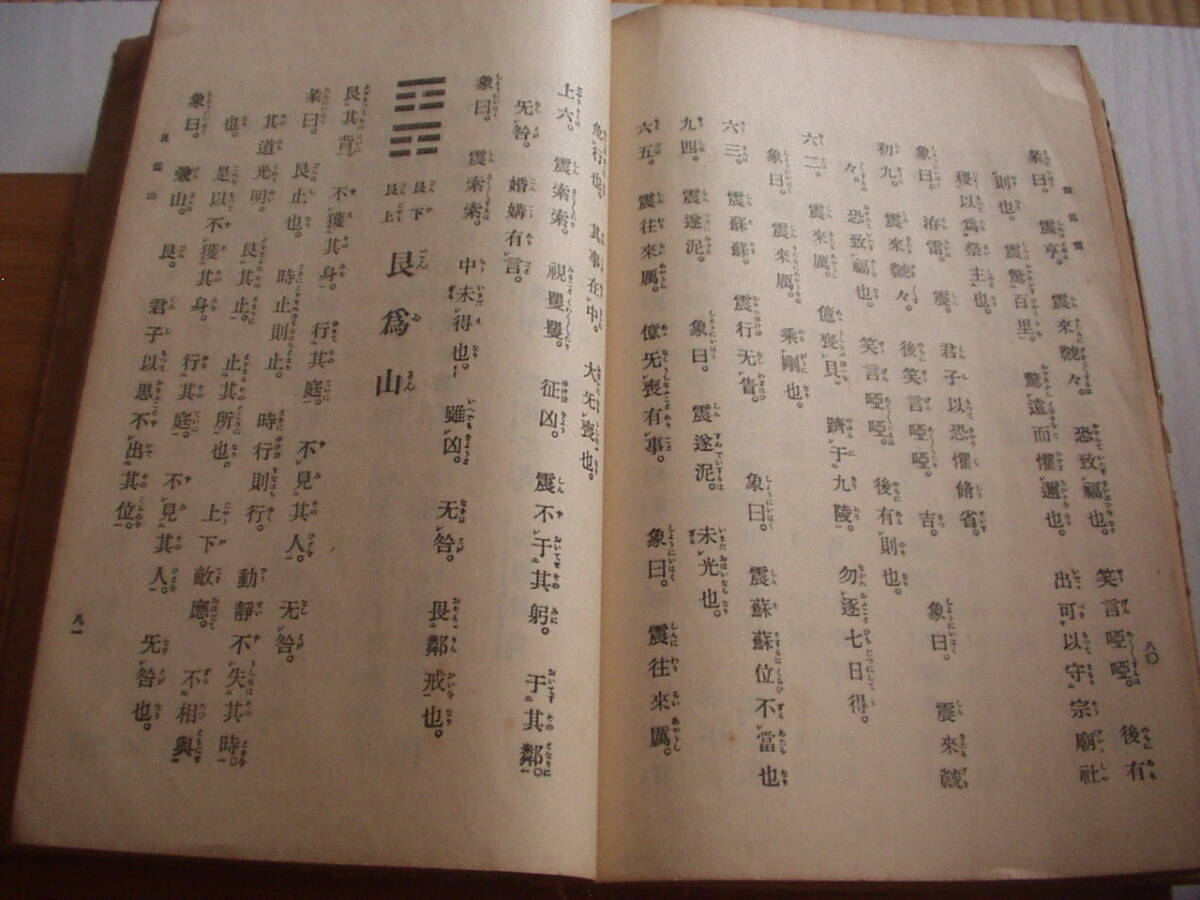 震爲雷
彖曰。震亨。震來虩々。恐致福也。笑言啞啞。後有
則也。震驚百里。驚遠而懼邇也。出可以守宗廟社
稷以爲祭主也。
象曰。洊雷。震。君子以恐懼脩省。
初九。震來虩々。後笑言啞啞。吉。象曰。震來虩
々。恐致福也。笑言啞啞。後有則也。
六二。震來厲。億喪貝。躋于九陵。勿逐七日得。
象曰。震來厲。乘剛也。
六三。震蘇蘇。震行无眚。象曰。震蘇蘇位不當也
九四。震遂泥。象曰。震遂泥。未光也。
六五。震往來厲。億无喪有事。象曰。震往來厲。
八〇
危行也。其事在中。大无喪也。
上六。震索索。視矍矍。征凶。震不于其躬。于其鄰。
无咎。婚媾有言。
象曰。震索索。中未得也。雖凶。无咎。畏鄰戒也。
艮下
艮上
艮爲山
艮其背。不獲其身。行其庭。不見其人。无咎。
彖曰。艮止也。時止則止。時行則行。動靜不失其時。
其道光明。艮其止。止其所也。上下敵應。不相與
也。是以不獲其身。行其庭。不見其人。无咎也。
象曰。兼山。艮。君子以思不出其位。
艮爲山
八一